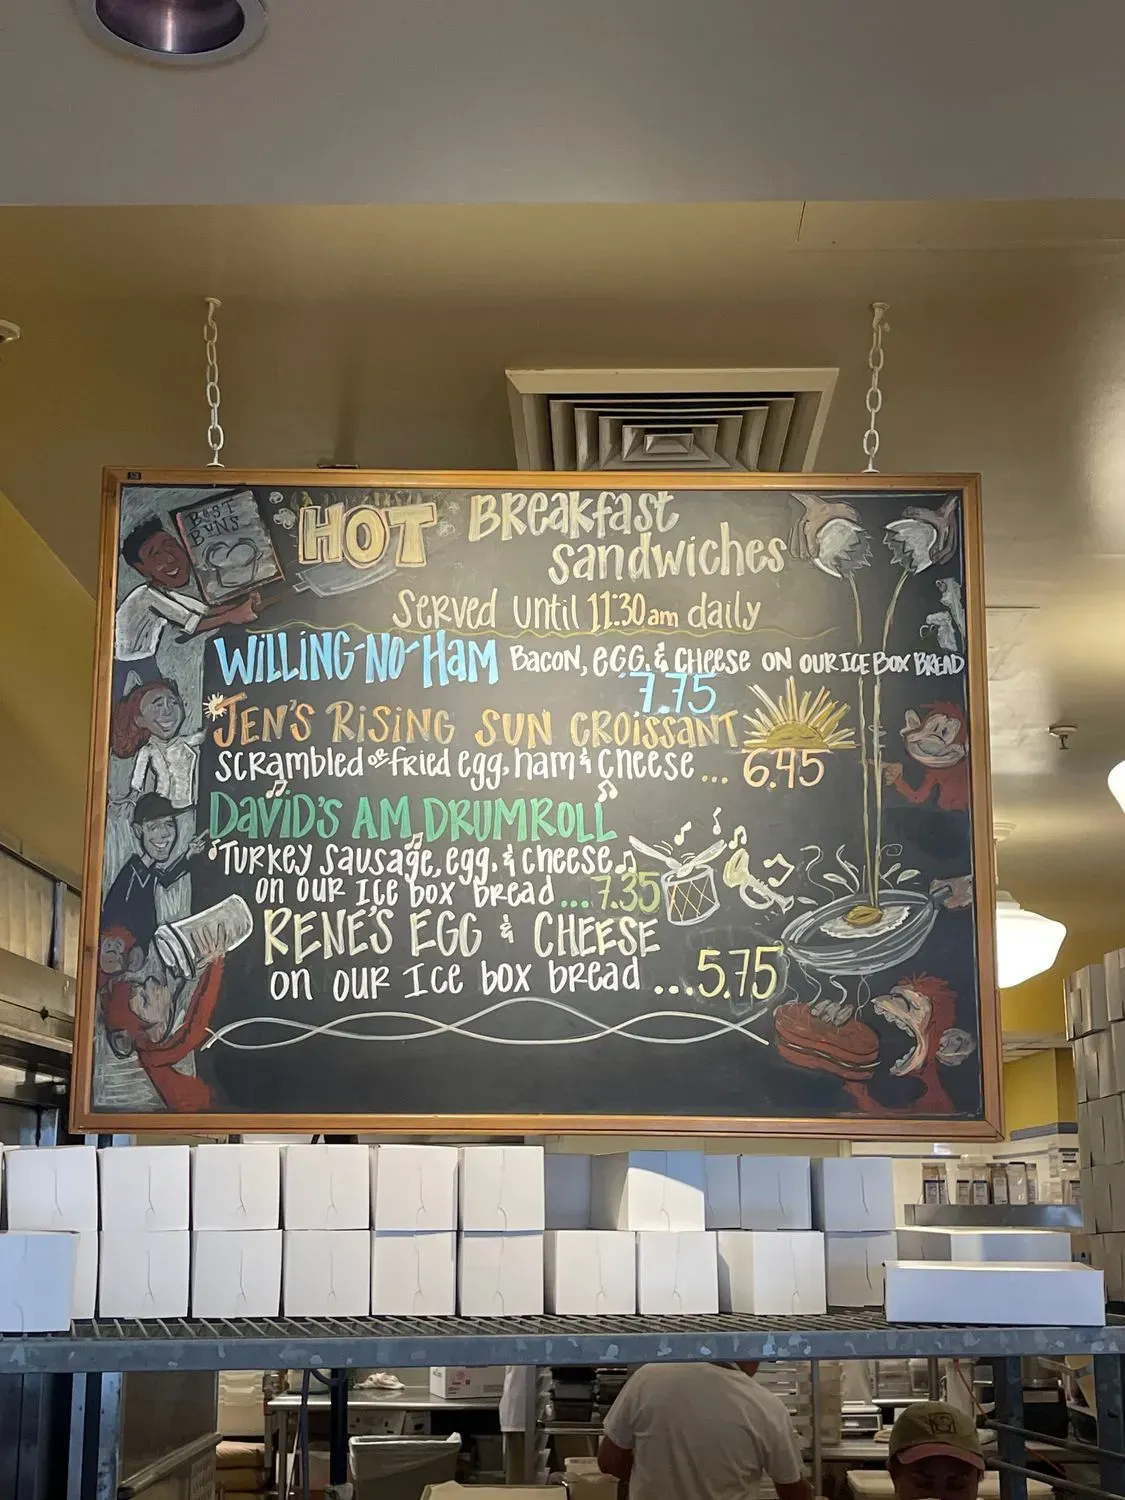 BEST
BUNS
HOT BREAKFAST
SANDWICHES
SERVED UNTIL 11:30am daily
WILLING-NO-HAM BACON, EGG, & CHEESE ON OUR ICE BOX BREAD
7.75
JEN'S RISING SUN CROISSANT
SCRAMBLED OR FRIED EGG, HAM & CHEESE... 6.45
DAVID'S AM DRUMROLL
TURKEY SAUSAGE, EGG, & CHEESE
ON OUR ICE BOX BREAD ...7.35
RENE'S EGG & CHEESE
ON OUR ICE BOX BREAD ...5.75